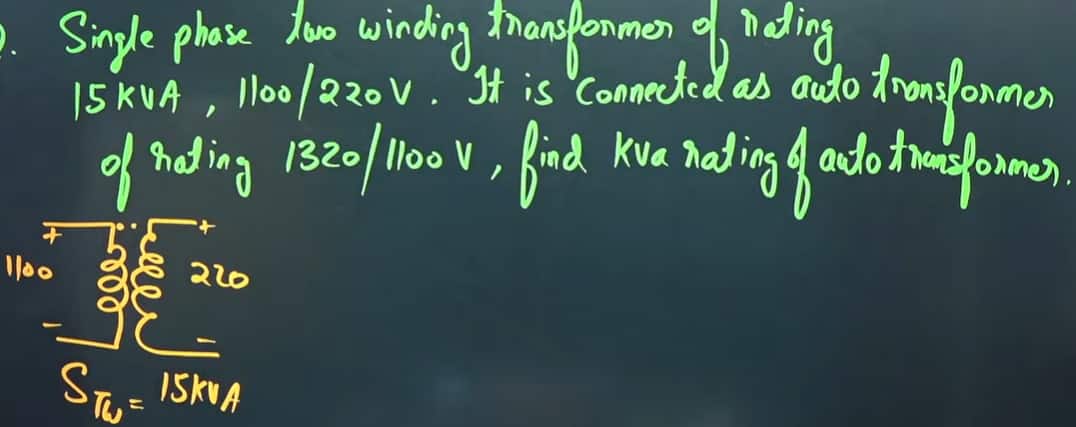 Single phase two winding transformer of rating
15 KVA , 1100/220 V . It is Connected as auto transformer
of rating 1320/1100 V , find KVA rating of auto transformer.
+ +
1100 220
- -
STW = 15KVA